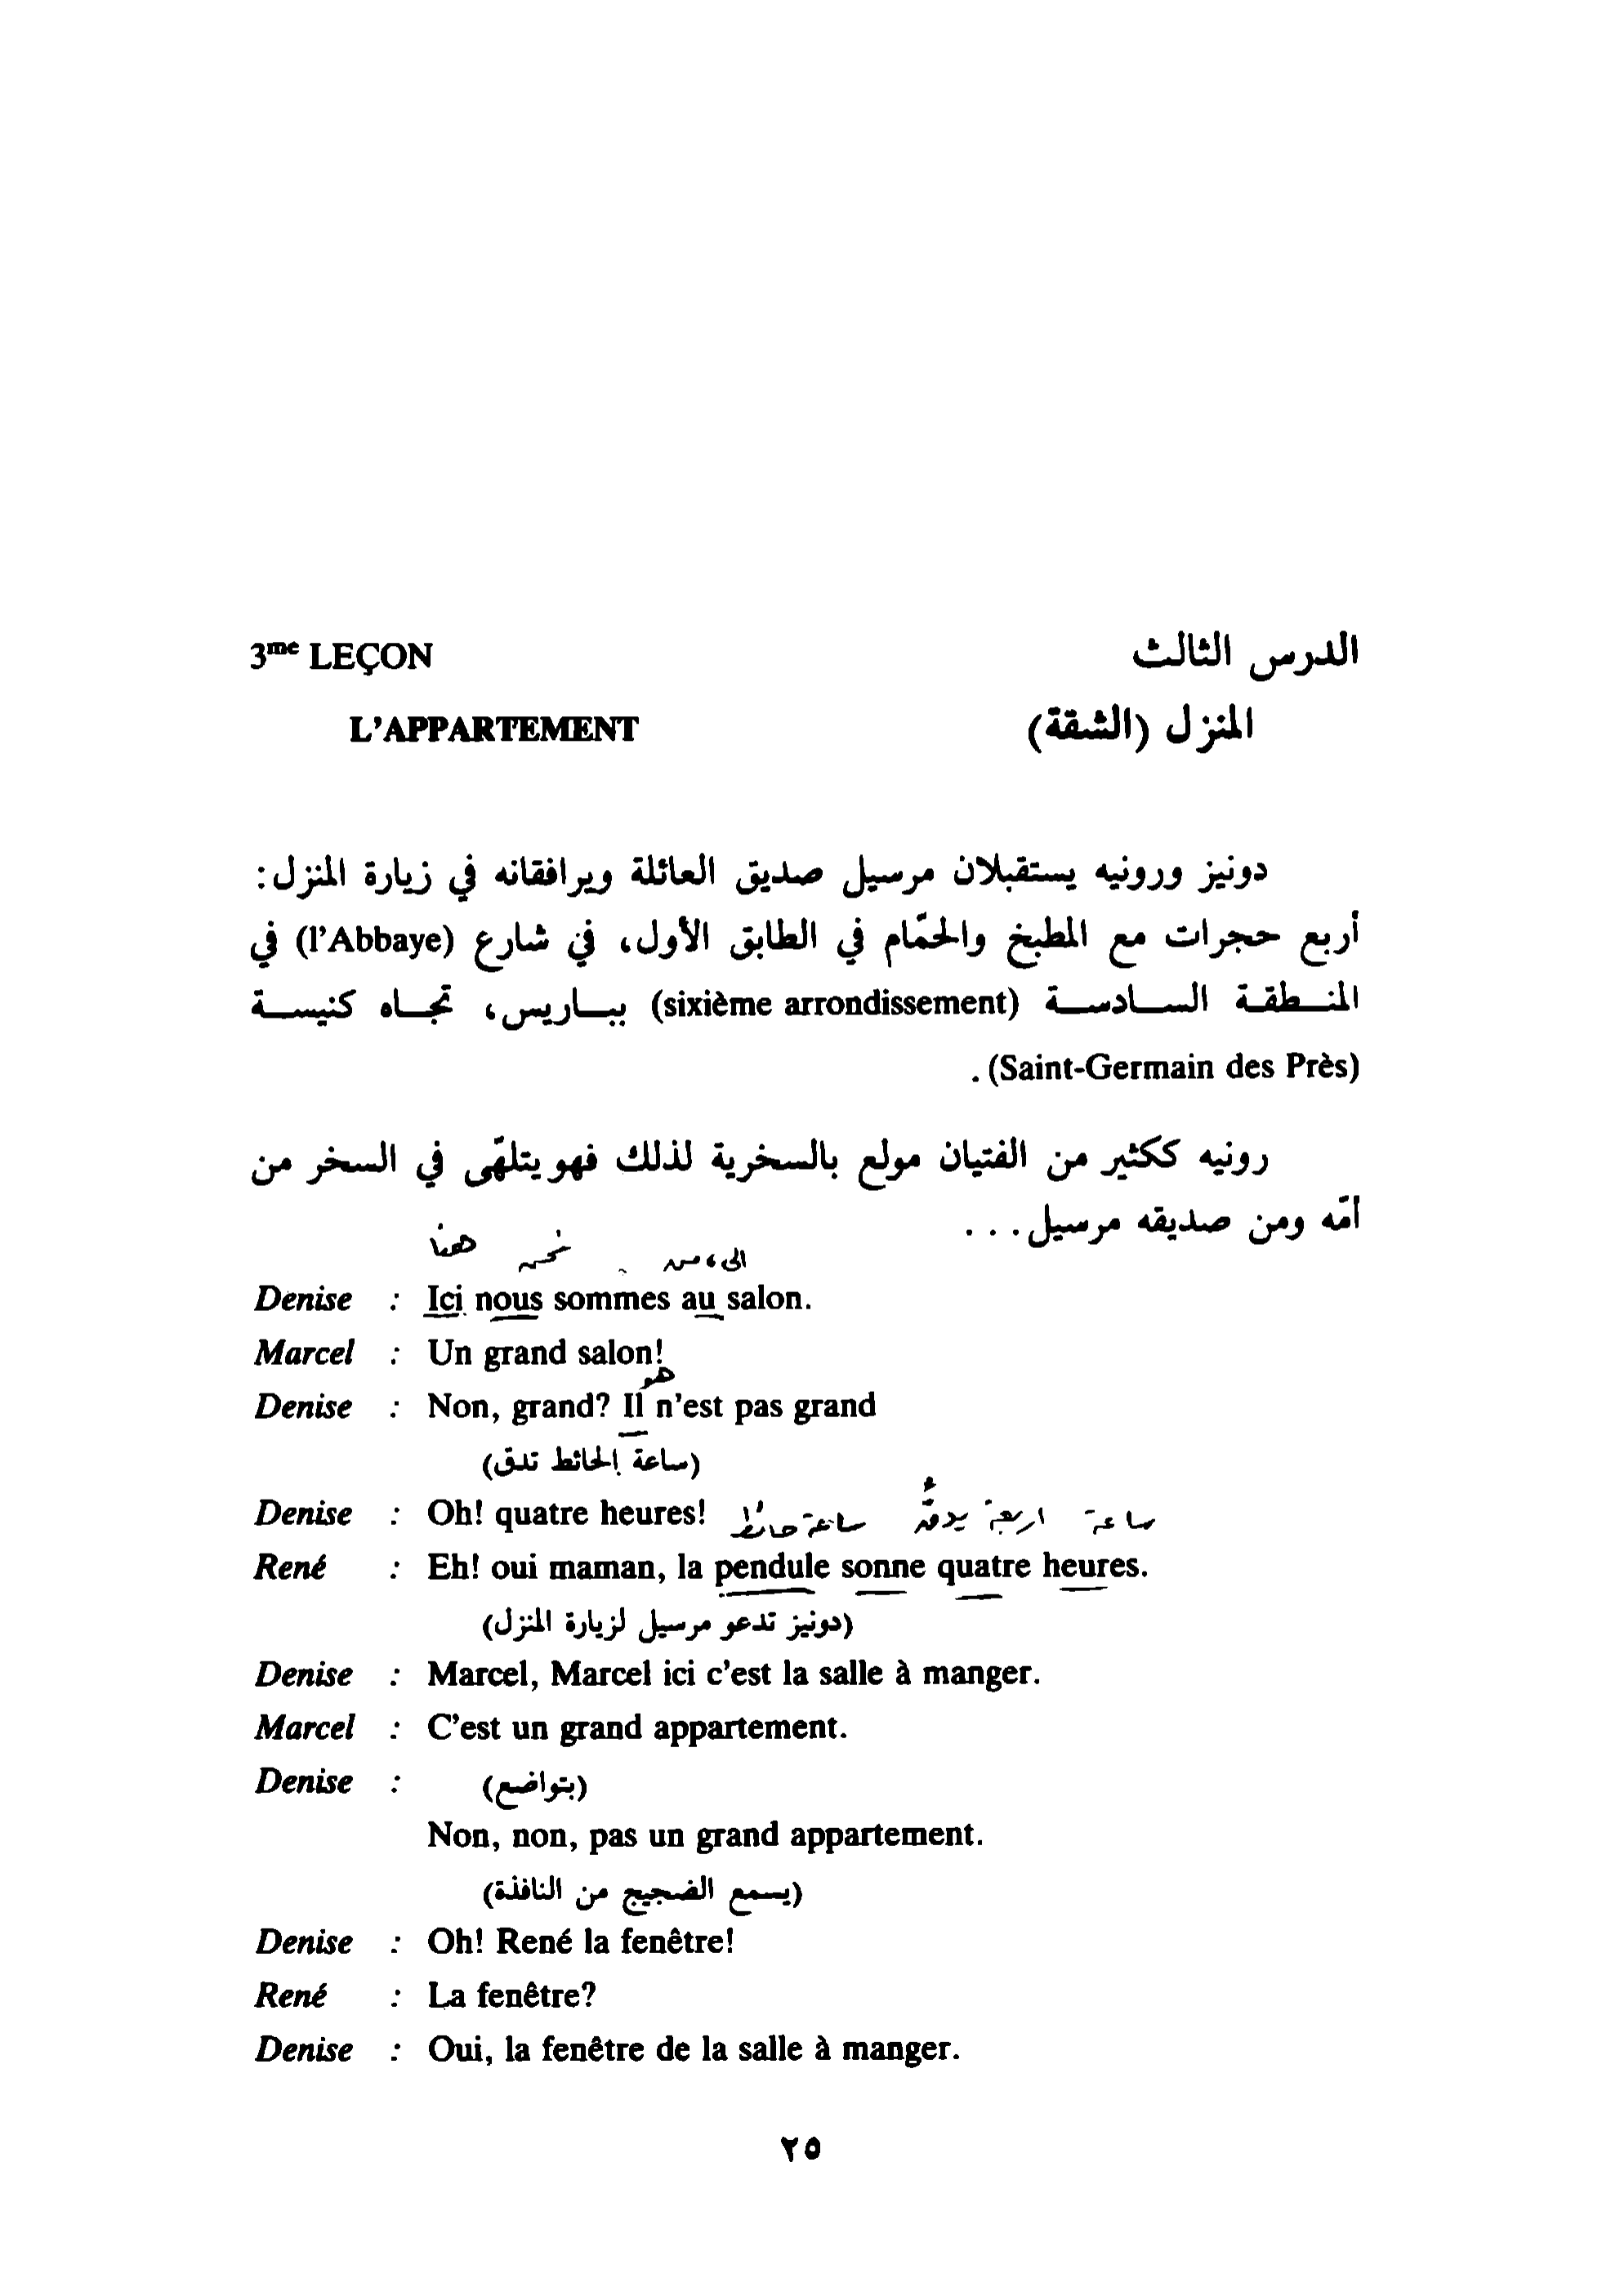 3me LEÇON
الدرس الثالث
L'APPARTEMENT
المنزل (الشقة)
دونيز ورونيه يستقبلان مرسيل صديق العائلة ويرافقانه في زيارة المنزل:
أربع حجرات مع المطبخ والحمّام في الطابق الأول، في شارع (l'Abbaye) في
المنطقة السادسة (sixième arrondissement) بباريس، تجاه كنيسة
(Saint-Germain des Près).
رونيه ككثير من الفتيان مولع بالسخرية لذلك فهو يتلهّى في السخر من
أمّه ومن صديقه مرسيل...
هنا نحن الى، من
Denise : Ici nous sommes au salon.
Marcel : Un grand salon!
هو
Denise : Non, grand? Il n'est pas grand
(ساعة الحائط تدق)
Denise : Oh! quatre heures! ساعة حائط اربعة ساعة
René : Eh! oui maman, la pendule sonne quatre heures.
(دونيز تدعو مرسيل لزيارة المنزل)
Denise : Marcel, Marcel ici c'est la salle à manger.
Marcel : C'est un grand appartement.
Denise : (بتواضع)
Non, non, pas un grand appartement.
(يسمع الضجيج من النافذة)
Denise : Oh! René la fenêtre!
René : La fenêtre?
Denise : Oui, la fenêtre de la salle à manger.
٢٥